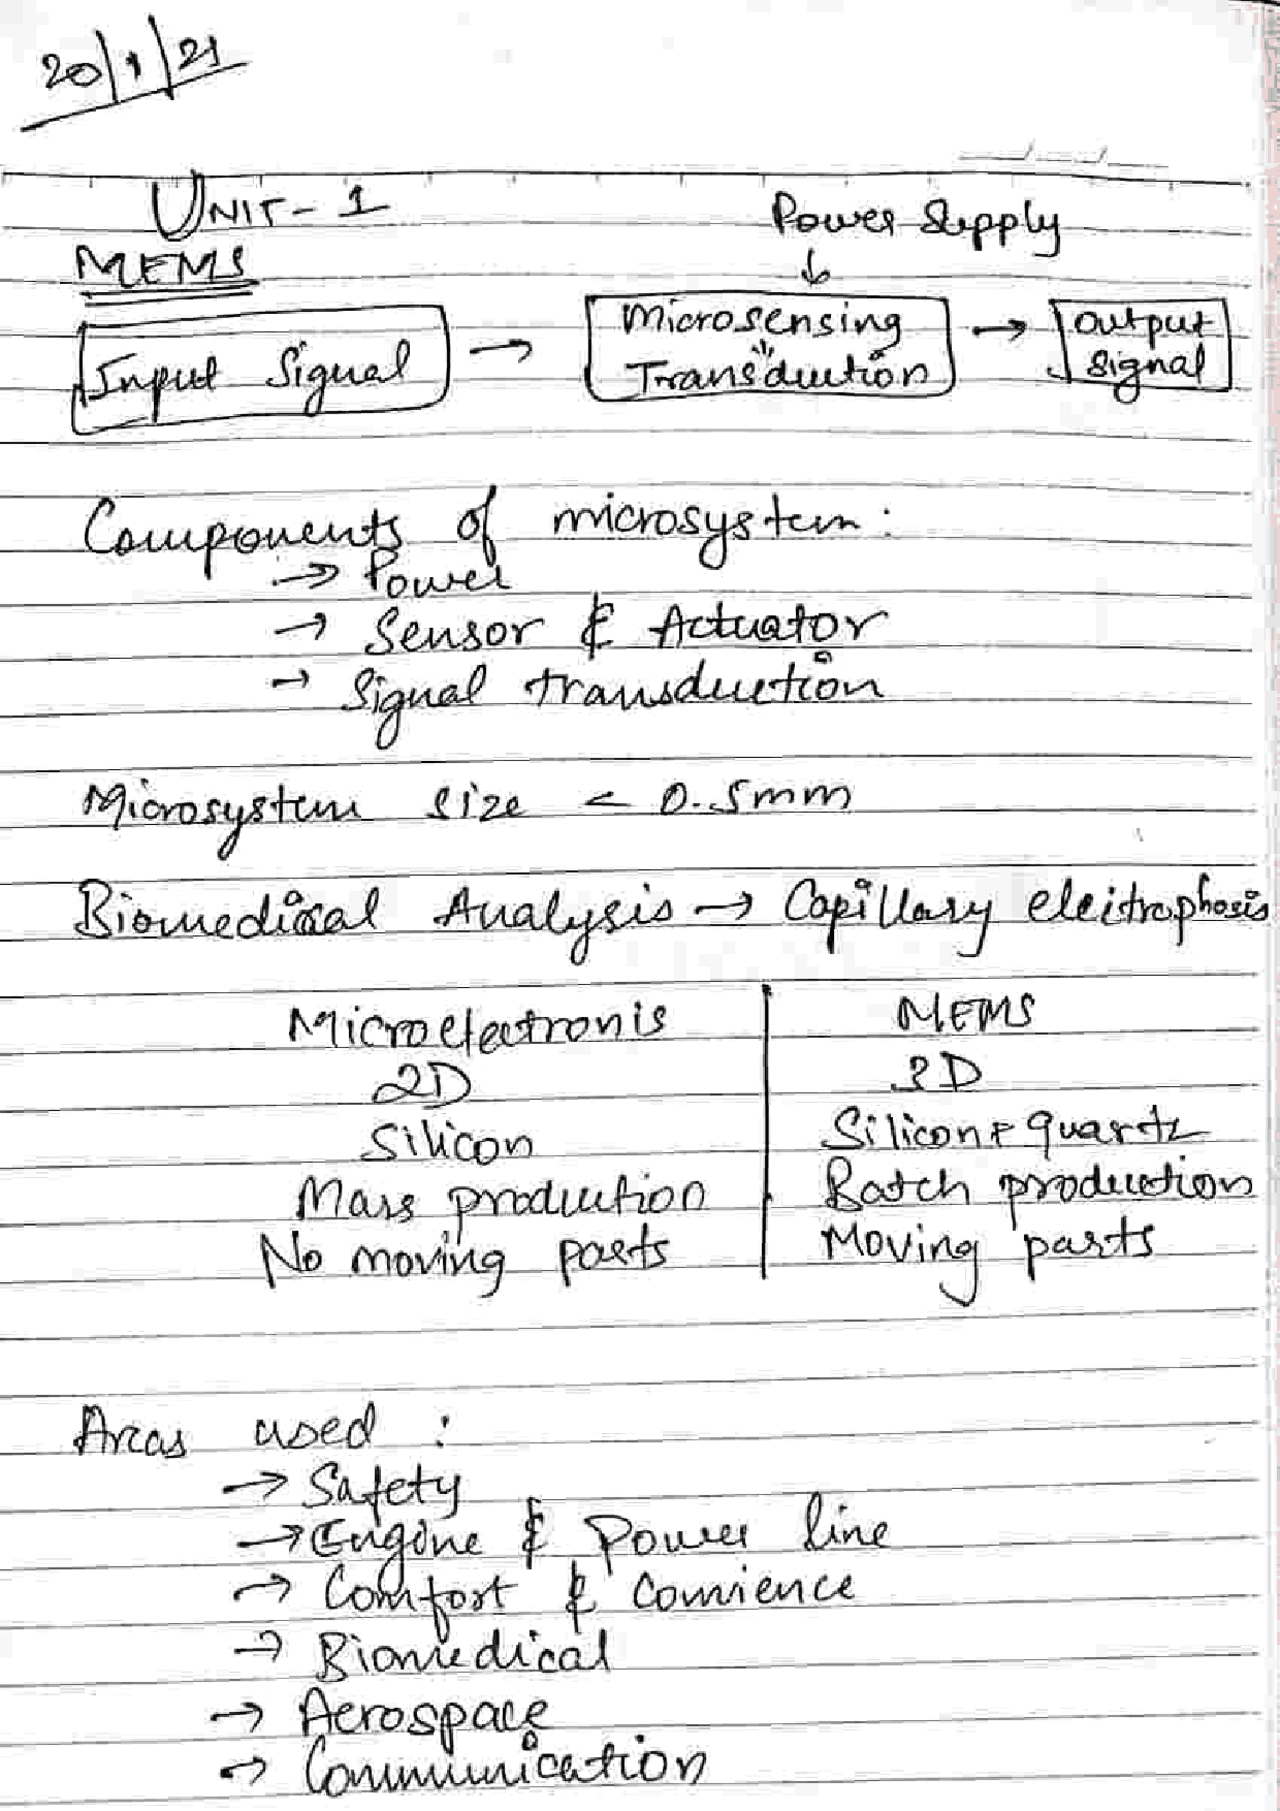 20/1/21
UNIT-1
Power Supply
MEMS
Input Signal → Microsensing Transduction → Output Signal
Components of microsystem:
→ Power
→ Sensor & Actuator
→ Signal transduction
Microsystem size < 0.5mm
Biomedical Analysis → Capillary eleitrophosis
Microelectronis | MEMS
2D | 3D
Silicon | Silicon + quartz
Mass production | Batch production
No moving parts | Moving parts
Areas used :
→ Safety
→ Engine & Power line
→ Comfort & Convience
→ Biomedical
→ Aerospace
→ Communication